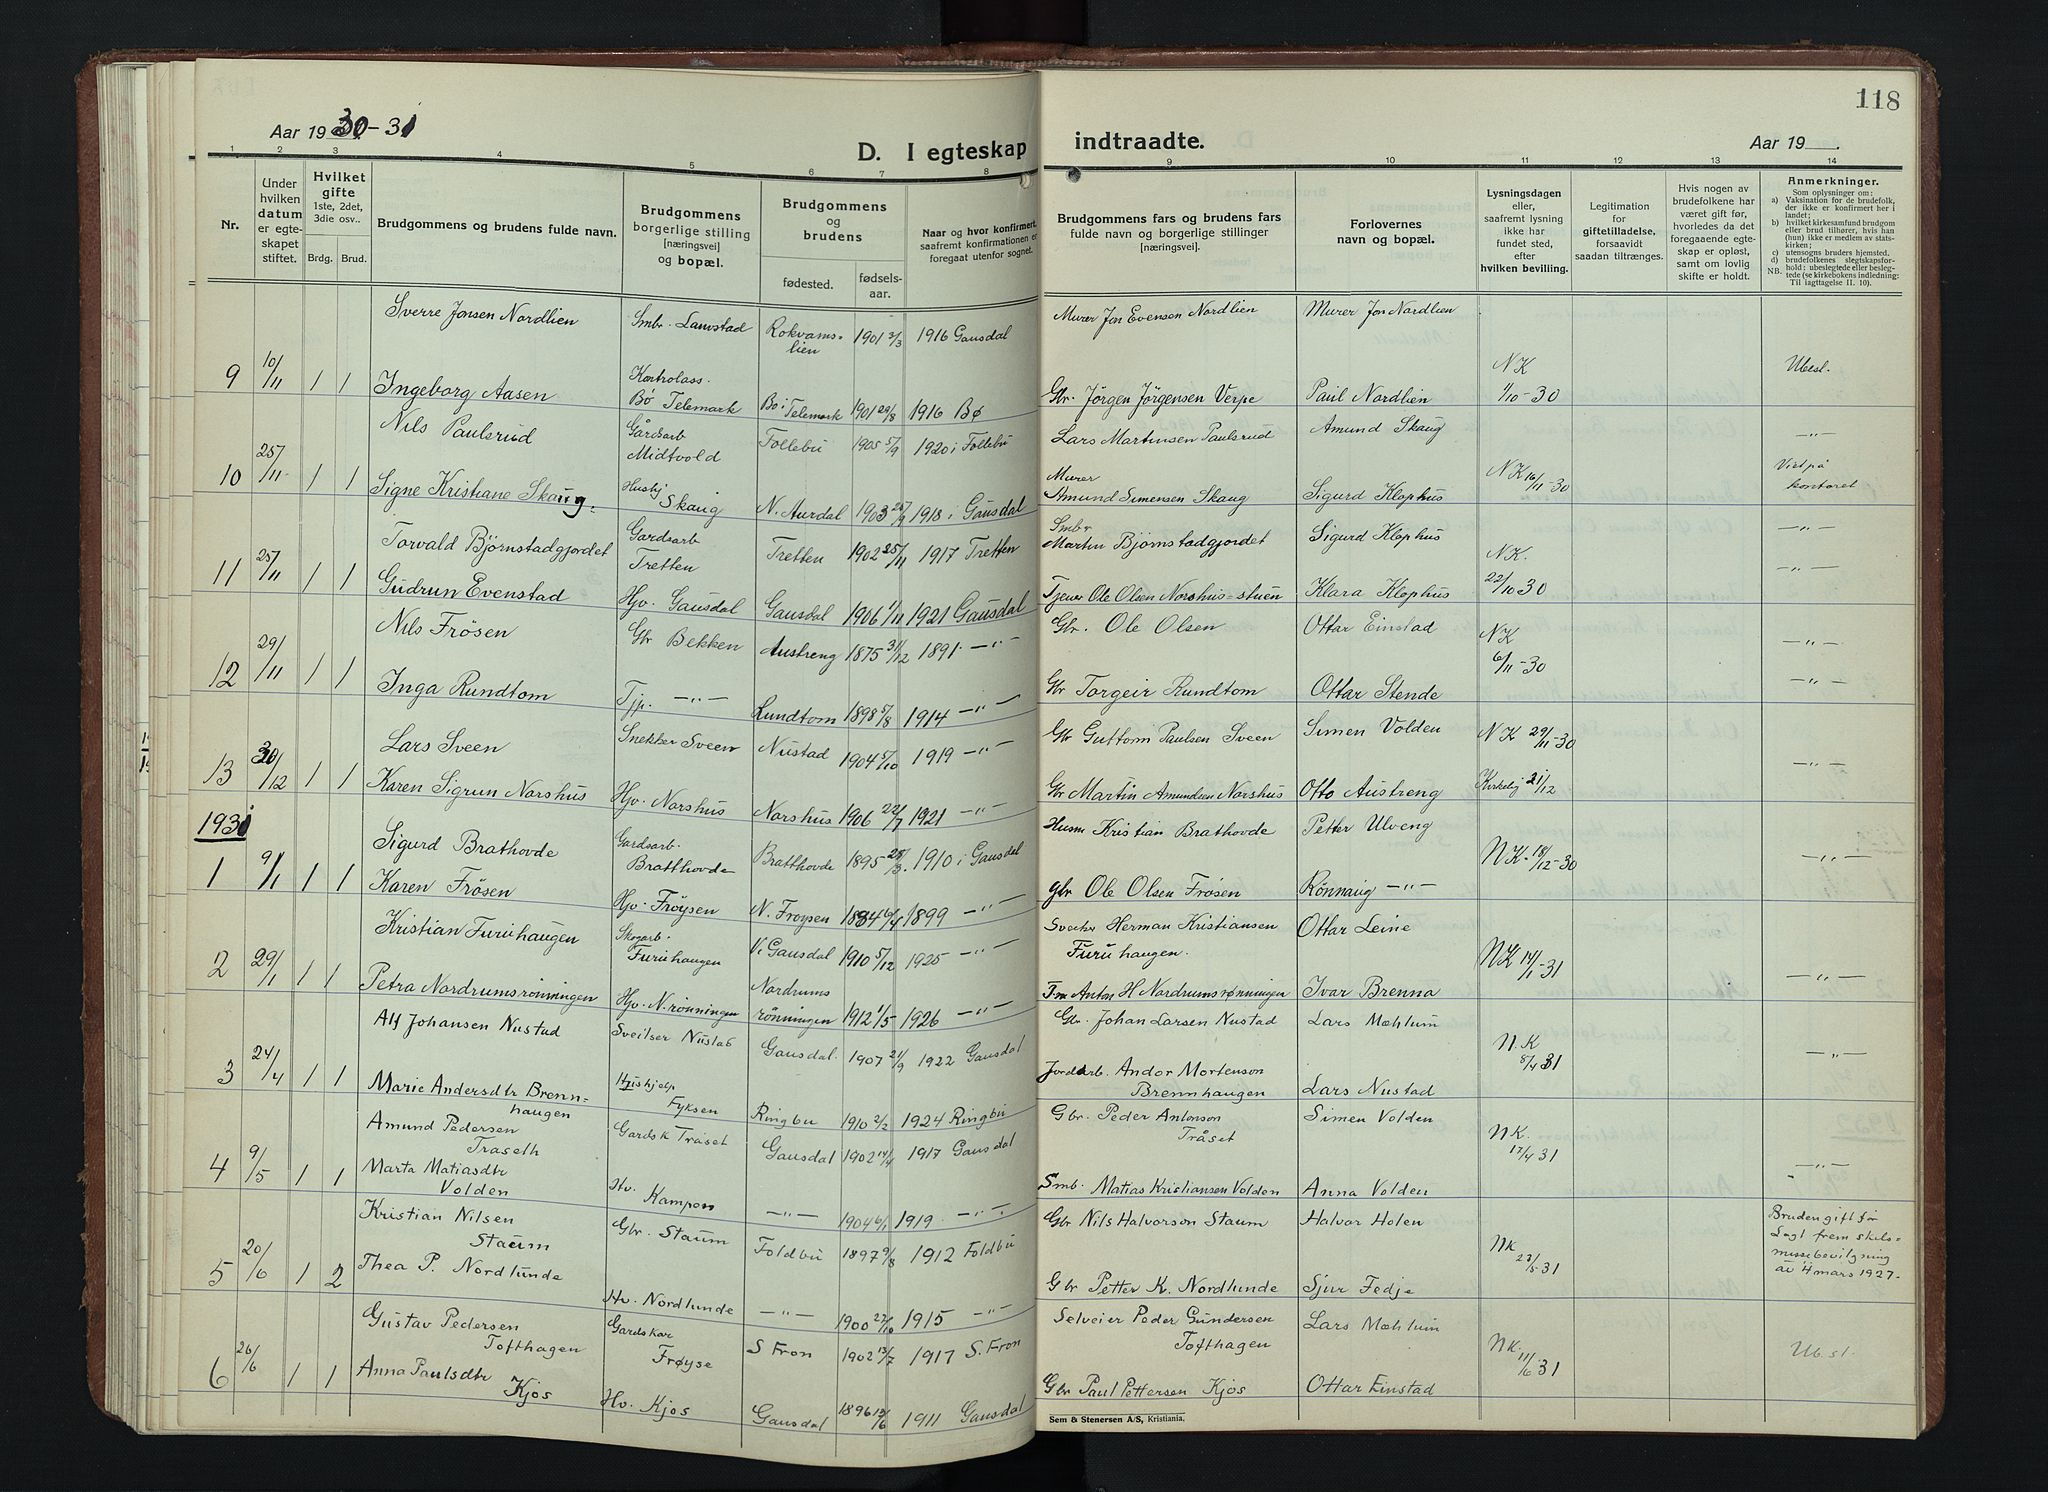 118
Aar 1930-31
D. I egteskap indtraadte.
Aar 19
1 2 3 4 5 6 7 8 9 10 11 12 13 14
Nr.
Under hvilken datum er egteskapet stiftet.
Hvilket gifte 1ste, 2det, 3die osv..
Brdg. Brud.
Brudgommens og brudens fulde navn.
Brudgommens borgerlige stilling [næringsvei] og bopæl.
Brudgommens og brudens
fødested. fødselsaar.
Naar og hvor konfirmert, saafremt konfirmationen er foregaat utenfor sognet.
Brudgommens fars og brudens fars fulde navn og borgerlige stillinger [næringsvei].
Forlovernes navn og bopæl.
Lysningsdagen eller, saafremt lysning ikke har fundet sted, efter hvilken bevilling.
Legitimation for giftetilladelse, forsaavidt saadan tiltrænges.
Hvis nogen av brudefolkene har været gift før, hvorledes da det foregaaende egteskap er opløst, samt om lovlig skifte er holdt.
Anmerkninger.
Som oplysninger om:
a) Vaksination for de brudefolk, der ikke er konfirmert her i landet;
b) hvilket kirkesamfund brudgom eller brud tilhører, hvis han (hun) ikke er medlem av statskirken;
c) utensogns bruders hjemsted.
d) brudefolkenes slegtskapsforhold: ubeslegtede eller beslegtede (se kirkebokens indledning: Til iagttagelse II. 10).
NB.
Sverre Jonsen Nordlien Smbr. Lauvstad Rokvamslien 1901 2/3 1916 Gausdal Murer Jon Evensen Nordlien Murer Jon Nordlien
9 10/11 1 1 Ingeborg Aasen Kontrolass. Bø Telemark Bø i Telemark 1901 29/8 1916 Bø Gbr. Jörgen Jörgensen Verpe Paul Nordlien NK 1/10-30 Ubesl.
Nils Paulsrud Gårdsarb Midtvold Follebu 1905 5/9 1920 i Follebu Lars Martinsen Paulsrud Amund Skaug -"-
10 25/11 1 1 Signe Kristiane Skaug. Hushj Skaug N. Aurdal 1903 20/9 1918 i Gausdal Murer Amund Simensen Skaug Sigurd Klophus NK 16/11-30 Viet på kontoret
Torvald Björnstadgjordet Gardsarb Tretten Tretten 1902 25/11 1917 Tretten Smbr Martin Björnstadgjordet Sigurd Klophus -"-
11 25/11 1 1 Gudrun Evenstad Hjv. Gausdal Gausdal 1906 1/11 1921 Gausdal Tjener Ole Olsen Norshus=stuen Klara Klophus NK. 22/10 30 -"-
Nils Frösen Gbr Bekken Austreng 1875 31/12 1891 -"- Gbr. Ole Olsen Ottar Einstad -"-
12 29/11 1 1 Inga Rundtom Tjp. -"- Rundtom 1898 5/8 1914 -"- Gbr Torgeir Rundtom Ottar Stende NK 6/11-30 -"-
Lars Sveen Snekker Sveen Nustad 1904 5/10 1919 -"- Gbr Guttorm Paulsen Sveen Simen Volden NK 29/11-30
13 30/12 1 1 Karen Sigrun Norshus Hjv. Norshus Norshus 1906 22/7 1921 -"- Gbr Martin Amundsen Norshus Otto Austreng Kirkelig 21/12 -"-
1931
Sigurd Brathovde Gardsarb. Bratthovde Bratthovde 1895 25/3. 1910 i Gausdal Husm Kristian Brathovde Petter Ulveng
1 9/1 1 1 Karen Frösen Hjv. Frøysen N. Froysen 1884 6/4 1899 -"- gbr Ole Olsen Frösen Rönnaug -"- NK-18/12-30 -"-
Kristian Furuhaugen Skogarb. Furuhaugen V. Gausdal 1910 5/12 1925 -"- Herman Kristiansen Furuhaugen. Ottar Leine
2 29/1 1 1 Petra Nordrumsrönningen Hjv. N.rönningen Nordrumsrönningen 1912 1/5 1926 -"- Anton H Nordrumsrønningen Ivar Brenna NK 14/1-31 -"-
Alf Johansen Nustad Sveitser Nustad Gausdal. 1907 21/9 1922 Gausdal Gbr. Johan Larsen Nustad Lars Mæhlum
3 24/4 1 1 Marie Andersdtr Brennhaugen Hushjelp Fyksen Ringbu 1910 2/2 1924 Ringbu Jordarb. Andor Mortenson Brennhaugen Lars Nustad N.K 8/4 31 -"-
Amund Pedersen Traseth Gardsk Tråset Gausdal 1902 14/4 1917 Gausdal Gbr. Peder Antonson Tråset Simen Volden
4 9/5 1 1 Marta Matiasdtr Volden Hv. Kampen -"- 1904 6/1 1919 -"- Smb. Matias Kristiansen Volden Anna Volden NK. 17/4 31 -"-
Kristian Nilsen Staum Gbr. Staum Foldbu 1897 9/8 1912 Foldbu Gbr Nils Halvorson Staum Halvor Holen
5 20/6 1 2 Thea P. Nordlunde Hv. Nordlunde -"- 1900 27/10 1915 -"- Gbr Petter K. Nordlunde Sjur Fedje NK 27/5-31 Bruden gift før Lagt frem skilsmissebevilgning av 4 mars 1927.
Gustav Pedersen Tofthagen Gardskar Frøyse S Fron 1902 13/7 1917 S. Fron Selveier Peder Gundersen Tofthagen Lars Mæhlum
6 26/6 1 1 Anna Paulsdtr Kjos Hv. Kjos Gausdal 1896 13/6 1911 Gausdal Gbr Paul Pettersen Kjos Ottar Einstad NK. 11/6 31 Ub.sl.
Sem & Stenersen A/S, Kristiania.